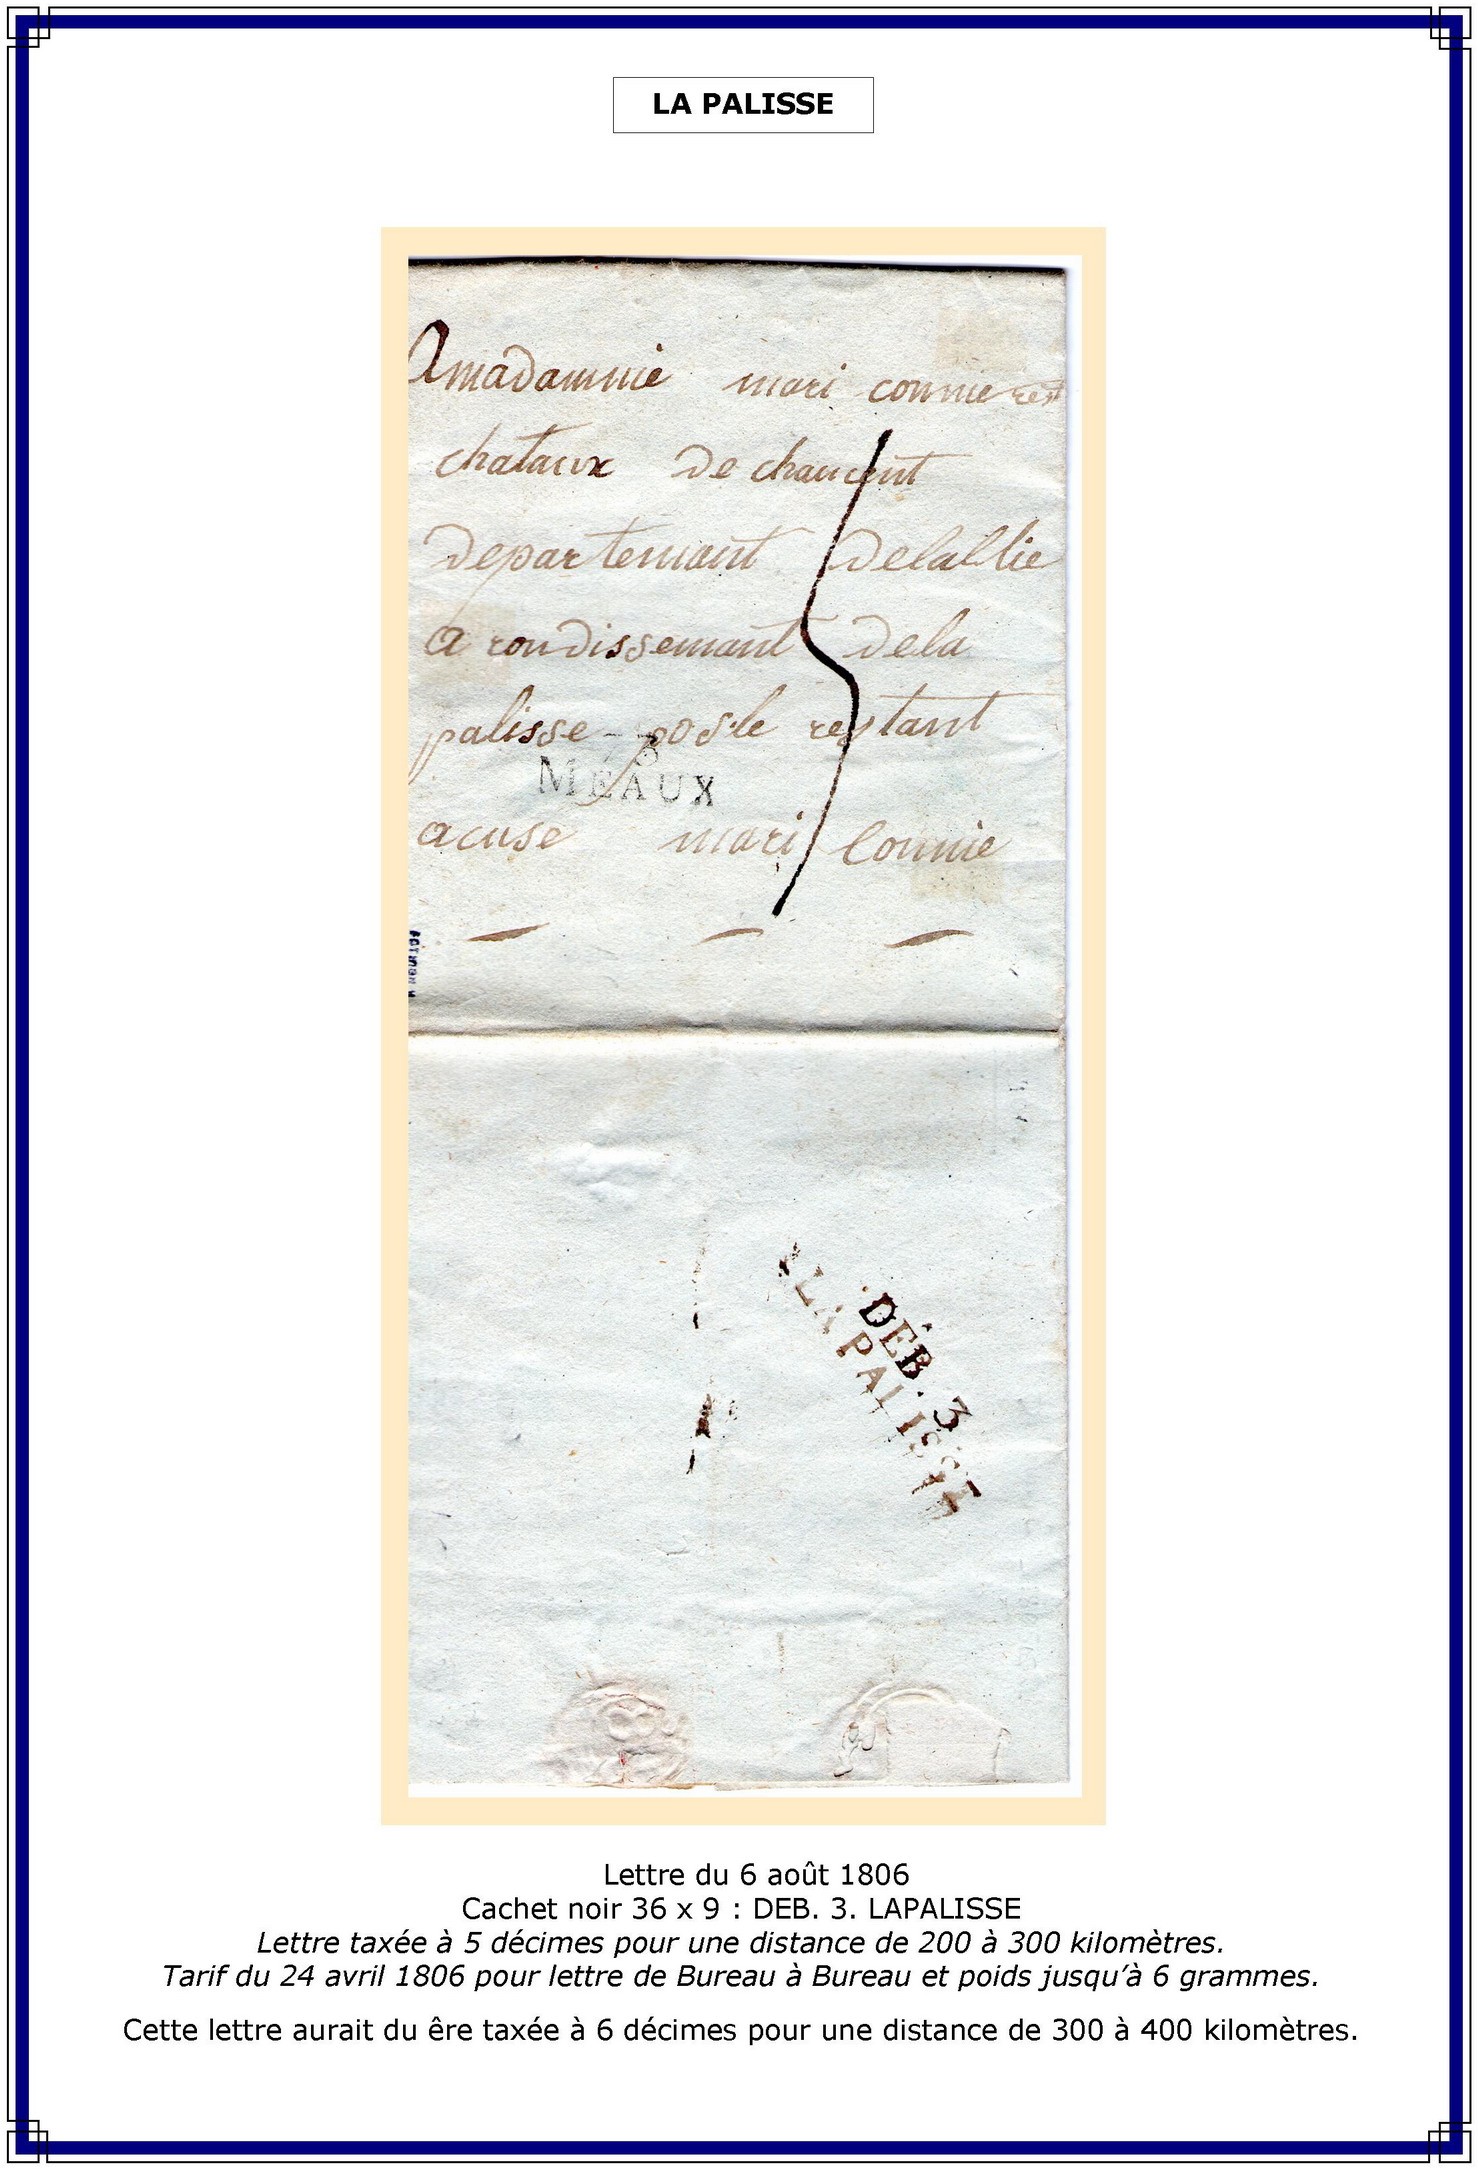 LA PALISSE
Amadamme mari connie rest
chataux de chaucent
departemant delallie
a rondissemant dela
palisse poste restant
MEAUX
acuse mari Connie
5
DEB. 3
LAPALISSE
Lettre du 6 août 1806
Cachet noir 36 x 9 : DEB. 3. LAPALISSE
Lettre taxée à 5 décimes pour une distance de 200 à 300 kilomètres.
Tarif du 24 avril 1806 pour lettre de Bureau à Bureau et poids jusqu’à 6 grammes.
Cette lettre aurait du êre taxée à 6 décimes pour une distance de 300 à 400 kilomètres.